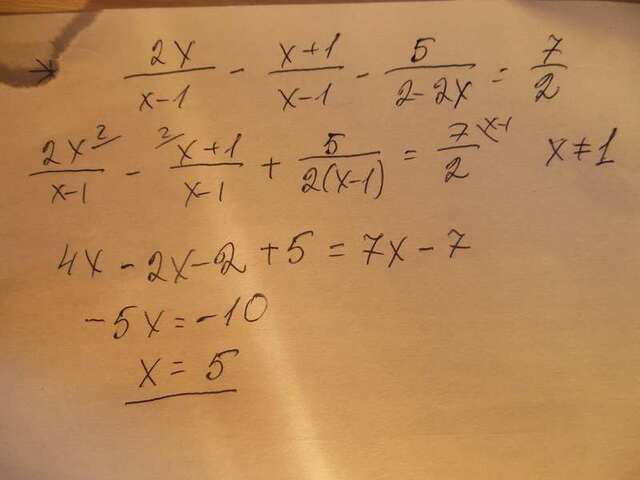 2x/(x-1) - (x+1)/(x-1) - 5/(2-2x) = 7/2
2x²/(x-1) - ²/(x+1)/(x-1) + 5/(2(x-1)) = 7/2 x-1 x≠1
4x - 2x - 2 + 5 = 7x - 7
-5x = -10
x = 5